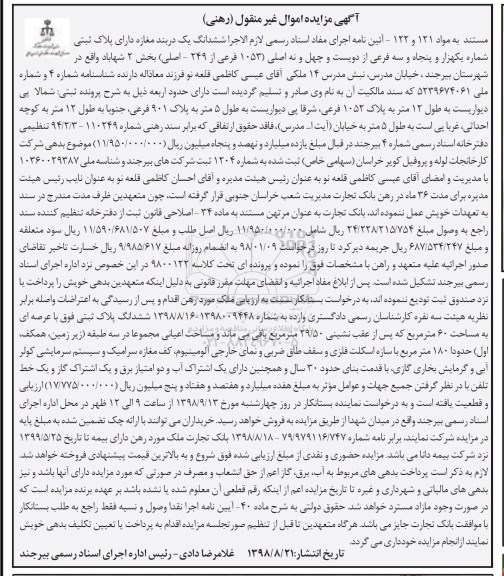 آگهی مزایده اموال غیر منقول (رهنی)
مستند به مواد ۱۲۱ و ۱۲۲ - آئین نامه اجرای مفاد اسناد رسمی لازم الاجرا ششدانگ یک دربند مغازه دارای پلاک ثبتی
شماره یکهزار و پنجاه و سه فرعی از دویست و چهل و نه اصلی (۱۰۵۳ فرعی از ۲۴۹ - اصلی) بخش ۲ شهاباد واقع در
شهرستان بیرجند، خیابان مدرس، نبش مدرس ۱۴ ملکی آقای عیسی کاظمی قلعه نو فرزند معاذاله دارنده شناسنامه شماره ۴ و شماره
ملی ۵۲۳۹۶۷۴۰۶۱ که سند مالکیت آن به نام وی صادر و تسلیم گردیده است دارای حدود اربعه ذیل به شرح پرونده ثبتی: شمالا پی
دیواریست به طول ۱۲ متر به پلاک ۱۰۵۲ فرعی، شرقا پی دیواریست به طول ۵ متر به پلاک ۹۰۱ فرعی، جنوبا به طول ۱۲ متر به کوچه
احداثی، غربا پی است به طول ۵ متر به خیابان (آیت ا... مدرس)، فاقد حقوق ارتفاقی که برابر سند رهنی شماره ۱۱۰۲۴۹ - ۹۴/۲/۳ تنظیمی
دفترخانه اسناد رسمی شماره ۴ بیرجند در قبال مبلغ یازده میلیارد و نهصد و پنجاه میلیون ریال (۱۱/۹۵۰/۰۰۰/۰۰۰) موضوع بدهی شرکت
کارخانجات لوله و پروفیل کویر خراسان (سهامی خاص) ثبت شده به شماره ۱۲۰۴ ثبت شرکت های بیرجند و شناسه ملی ۱۰۳۶۰۰۲۹۳۸۷
با مدیریت و امضای آقای عیسی کاظمی قلعه نو به عنوان رئیس هیئت مدیره و آقای احسان کاظمی قلعه نو به عنوان نایب رئیس هیئت
مدیره برای مدت ۳۶ ماه در رهن بانک تجارت مدیریت شعب خراسان جنوبی قرار گرفته است، چون متعهدین ظرف مدت مندرج در سند
به تعهدات خویش عمل ننموده اند، بانک تجارت به عنوان مرتهن مستند به ماده ۳۴ - اصلاحی قانون ثبت از دفترخانه تنظیم کننده سند
راجع به وصول مبلغ ۲۴/۲۲۸/۲۱۵/۷۵۴ ریال شامل ۱۱/۹۵۰/۰۰۰/۰۰۰ ریال اصل طلب و مبلغ ۱۱/۵۹۰/۶۸۱/۵۰۷ ریال سود متعلقه
و مبلغ ۶۸۷/۵۳۴/۲۴۷ ریال جریمه دیرکرد تا روز درخواست ۹۸۰۱/۰۹ به انضمام روزانه مبلغ ۹/۹۸۵/۶۱۷ ریال خسارت تاخیر تقاضای
صدور اجرائیه علیه متعهد و راهن با مشخصات فوق را نموده و پرونده ای تحت کلاسه ۹۸۰۰۱۲۳ در این خصوص نزد اداره اجرای اسناد
رسمی بیرجند تشکیل شده است. پس از ابلاغ مفاد اجرائیه و انقضای مهلت مقرر قانونی به دلیل اینکه متعهدین بدهی خویش را پرداخت یا
نزد صندوق ثبت تودیع ننموده اند، به درخواست بستانکار نسبت به ارزیابی ملک مورد رهن اقدام و پس از رسیدگی به اعتراضات واصله برابر
نظریه هیئت سه نفره کارشناسان رسمی دادگستری وارده به شماره ۹۴۴۸-۱۳۹۸۰۰ - ۱۳۹۸/۸/۱۶ ششدانگ پلاک ثبتی فوق با عرصه ای
به مساحت ۶۰ مترمربع که پس از عقب نشینی ۳۹/۵۰ مترمربع باقی می ماند و مساحت اعیانی مجموعا در سه طبقه (زیر زمین، همکف،
اول) حدودا ۱۸۰ متر مربع با سازه اسکلت فلزی و سقف طاق ضربی و نمای خارجی آلومینیوم، کف مغازه سرامیک و سیستم سرمایشی کولر
آبی و گرمایش بخاری گازی، با قدمت بنای حدود ۳۰ سال و همچنین دارای یک اشتراک آب و دو امتیاز برق و یک اشتراک گاز و یک خط
تلفن با در نظر گرفتن جمیع جهات و عوامل مؤثر به مبلغ هفده میلیارد و هفتصد و هفتاد و پنج میلیون ریال (۱۷/۷۷۵/۰۰۰/۰۰۰) ارزیابی
و قطعیت یافته است و به درخواست نماینده بستانکار در روز چهارشنبه مورخ ۱۳۹۸/۹/۱۳ از ساعت ۹ الی ۱۲ ظهر در محل اداره اجرای
اسناد رسمی بیرجند واقع در میدان شهدا از طریق مزایده به فروش خواهد رسید. خریداران می توانند با ارائه چک تضمین شده به مبلغ پایه
در مزایده شرکت نمایند، برابر نامه شماره ۷۹/۹۷۹۱۱۶/۷۴۷ - ۱۳۹۸/۸/۱۸ بانک تجارت ملک مورد رهن دارای بیمه تا تاریخ ۱۳۹۹/۵/۲۵
نزد شرکت بیمه دانا می باشد. مزایده حضوری و نقدی از مبلغ ارزیابی شده فوق شروع و به بالاترین قیمت پیشنهادی فروخته خواهد شد.
لازم به ذکر است پرداخت بدهی های مربوط به آب، برق، گاز اعم از حق انشعاب و مصرف در صورتی که مورد مزایده دارای آنها باشد و نیز
بدهی های مالیاتی و شهرداری و غیره تا تاریخ مزایده اعم از اینکه رقم قطعی آن معلوم شده یا نشده باشد بر عهده برنده مزایده است که
در صورت وجود مازاد مسترد خواهد شد. حقوق دولتی به شرح ماده ۴۰- آیین نامه اجرا نقدا وصول و نسیه فقط راجع به طلب بستانکار
با موافقت بانک تجارت جایز می باشد. هرگاه متعهدین تا قبل از تنظیم صورتجلسه مزایده اقدام به پرداخت یا تعیین تکلیف بدهی خویش
نمایند ازانجام مزایده خودداری می گردد.
تاریخ انتشار: ۱۳۹۸/۸/۲۱ غلامرضا دادی - رئیس اداره اجرای اسناد رسمی بیرجند